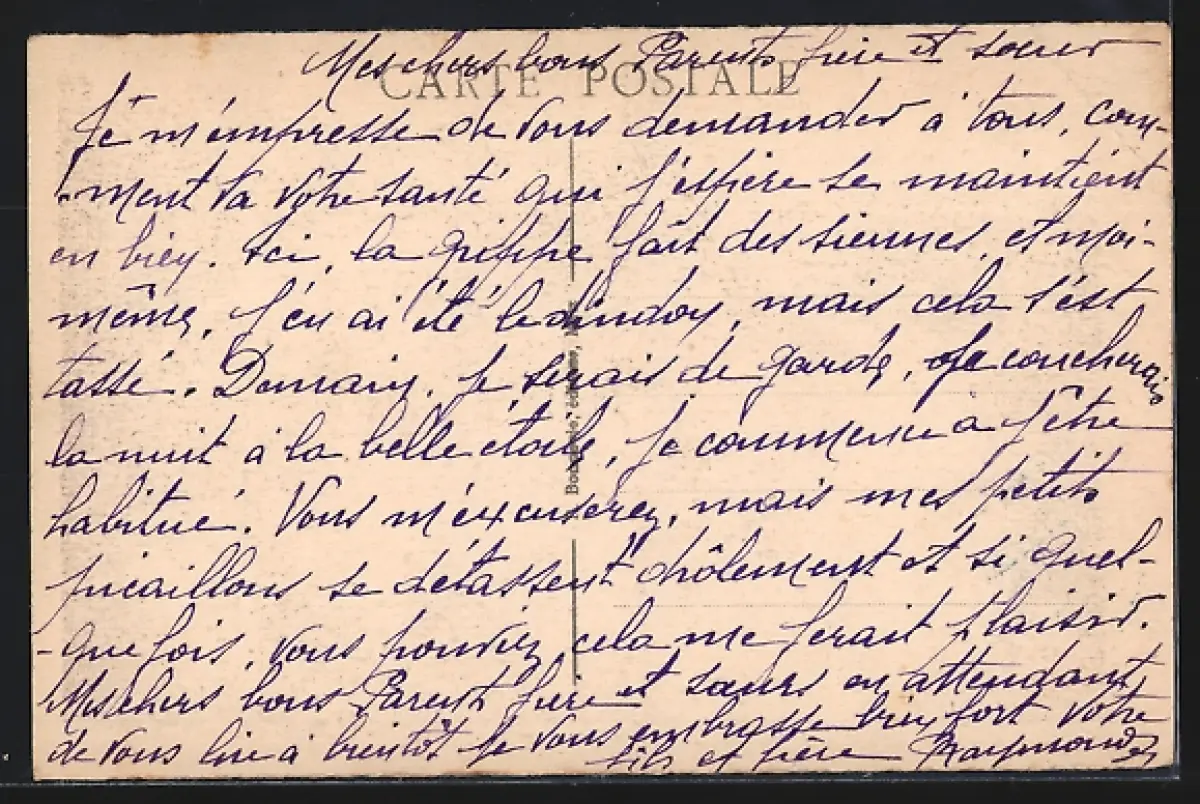 Mes chers bons Parents frère et sœur
CARTE POSTALE
Je m'empresse de vous demander à tous, com-
-ment va votre santé qui j'espère se maintient
en bien. Ici, la grippe fait des siennes, et moi-
même, j'en ai été le dindon, mais cela s'est
tassé. Demain, je serais de garde, je coucherais
la nuit à la belle étoile, je commence à j'être
habitué. Vous m'excuserez, mais mes petits
picaillons se détassent drôlement et si quel-
-que fois, vous pouviez, cela me ferait plaisir.
Mes chers bons Parents frère et sœurs en attendant
de vous lire à bientôt je vous embrasse bien fort votre
fils et frère Raymond